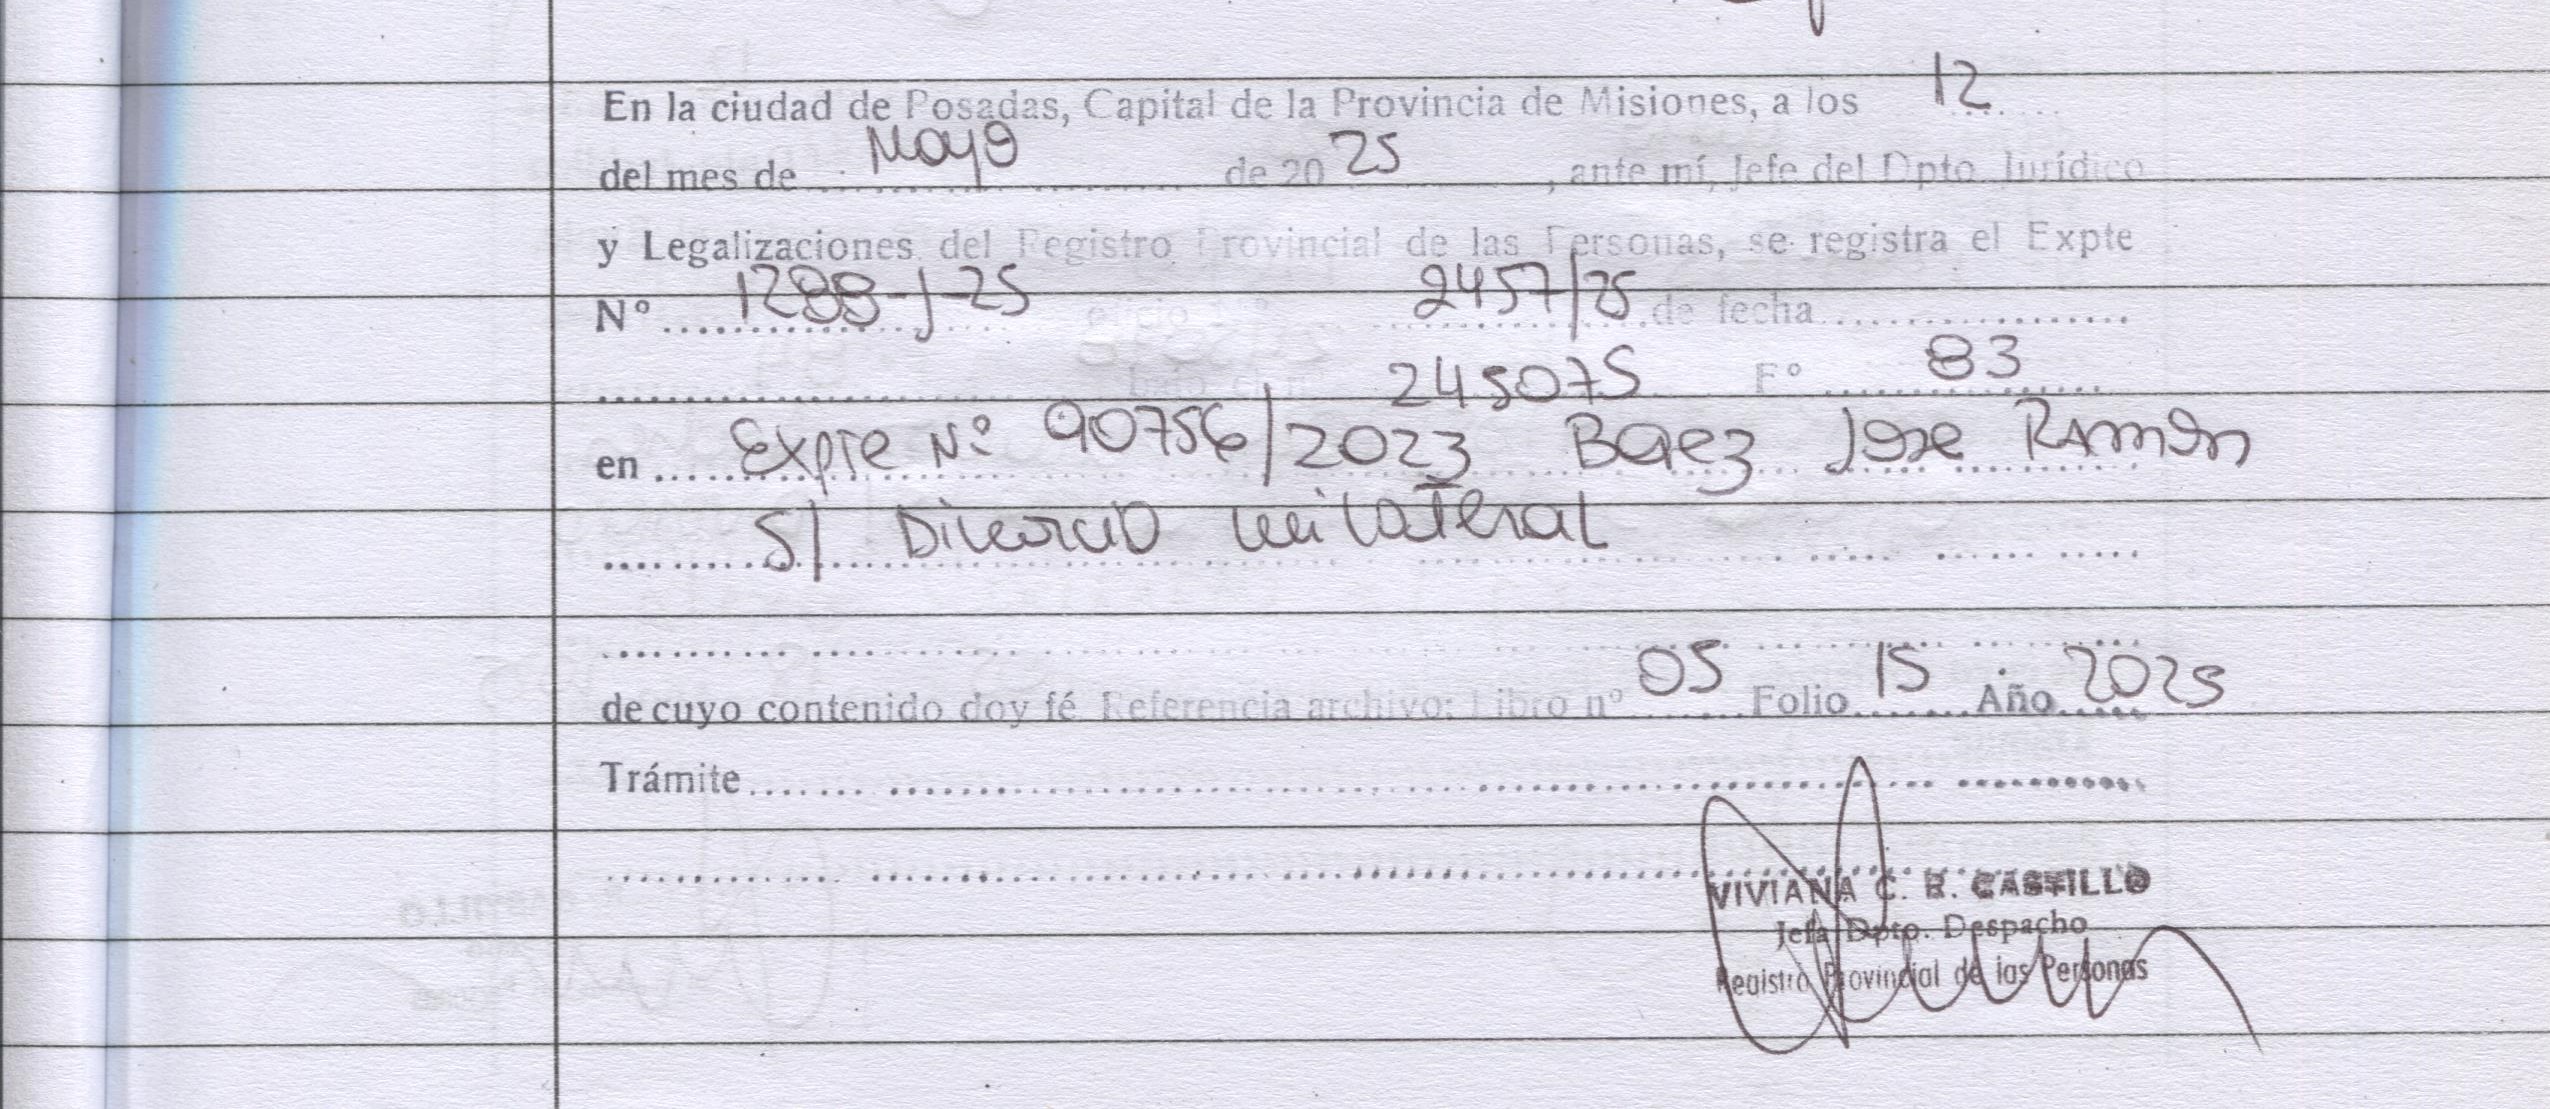 En la ciudad de Posadas, Capital de la Provincia de Misiones, a los 12
del mes de Mayo de 20 25, ante mí, Jefe del Dpto. Jurídico
y Legalizaciones del Registro Provincial de las Personas, se registra el Expte
Nº 1288-J-25 oficio 2457/25 de fecha
bajo el n 245075 Fº 83
en Expte Nº 90756/2023 Baez Jose Ramón
S/ Divorcio unilateral
de cuyo contenido doy fé Referencia archivo: Libro nº 05 Folio 15 Año 2025
Trámite
VIVIANA C. R. CASTILLO
Jefa Dpto. Despacho
Registro Provincial de las Personas